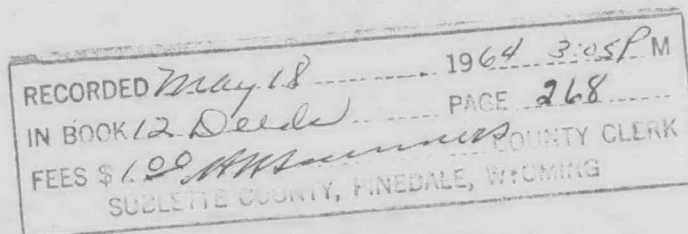 RECORDED May 18 1964 3:05P M
IN BOOK 12 Deeds PAGE 268
FEES $ 1.00 COUNTY CLERK
SUBLETTE COUNTY, PINEDALE, WYOMING